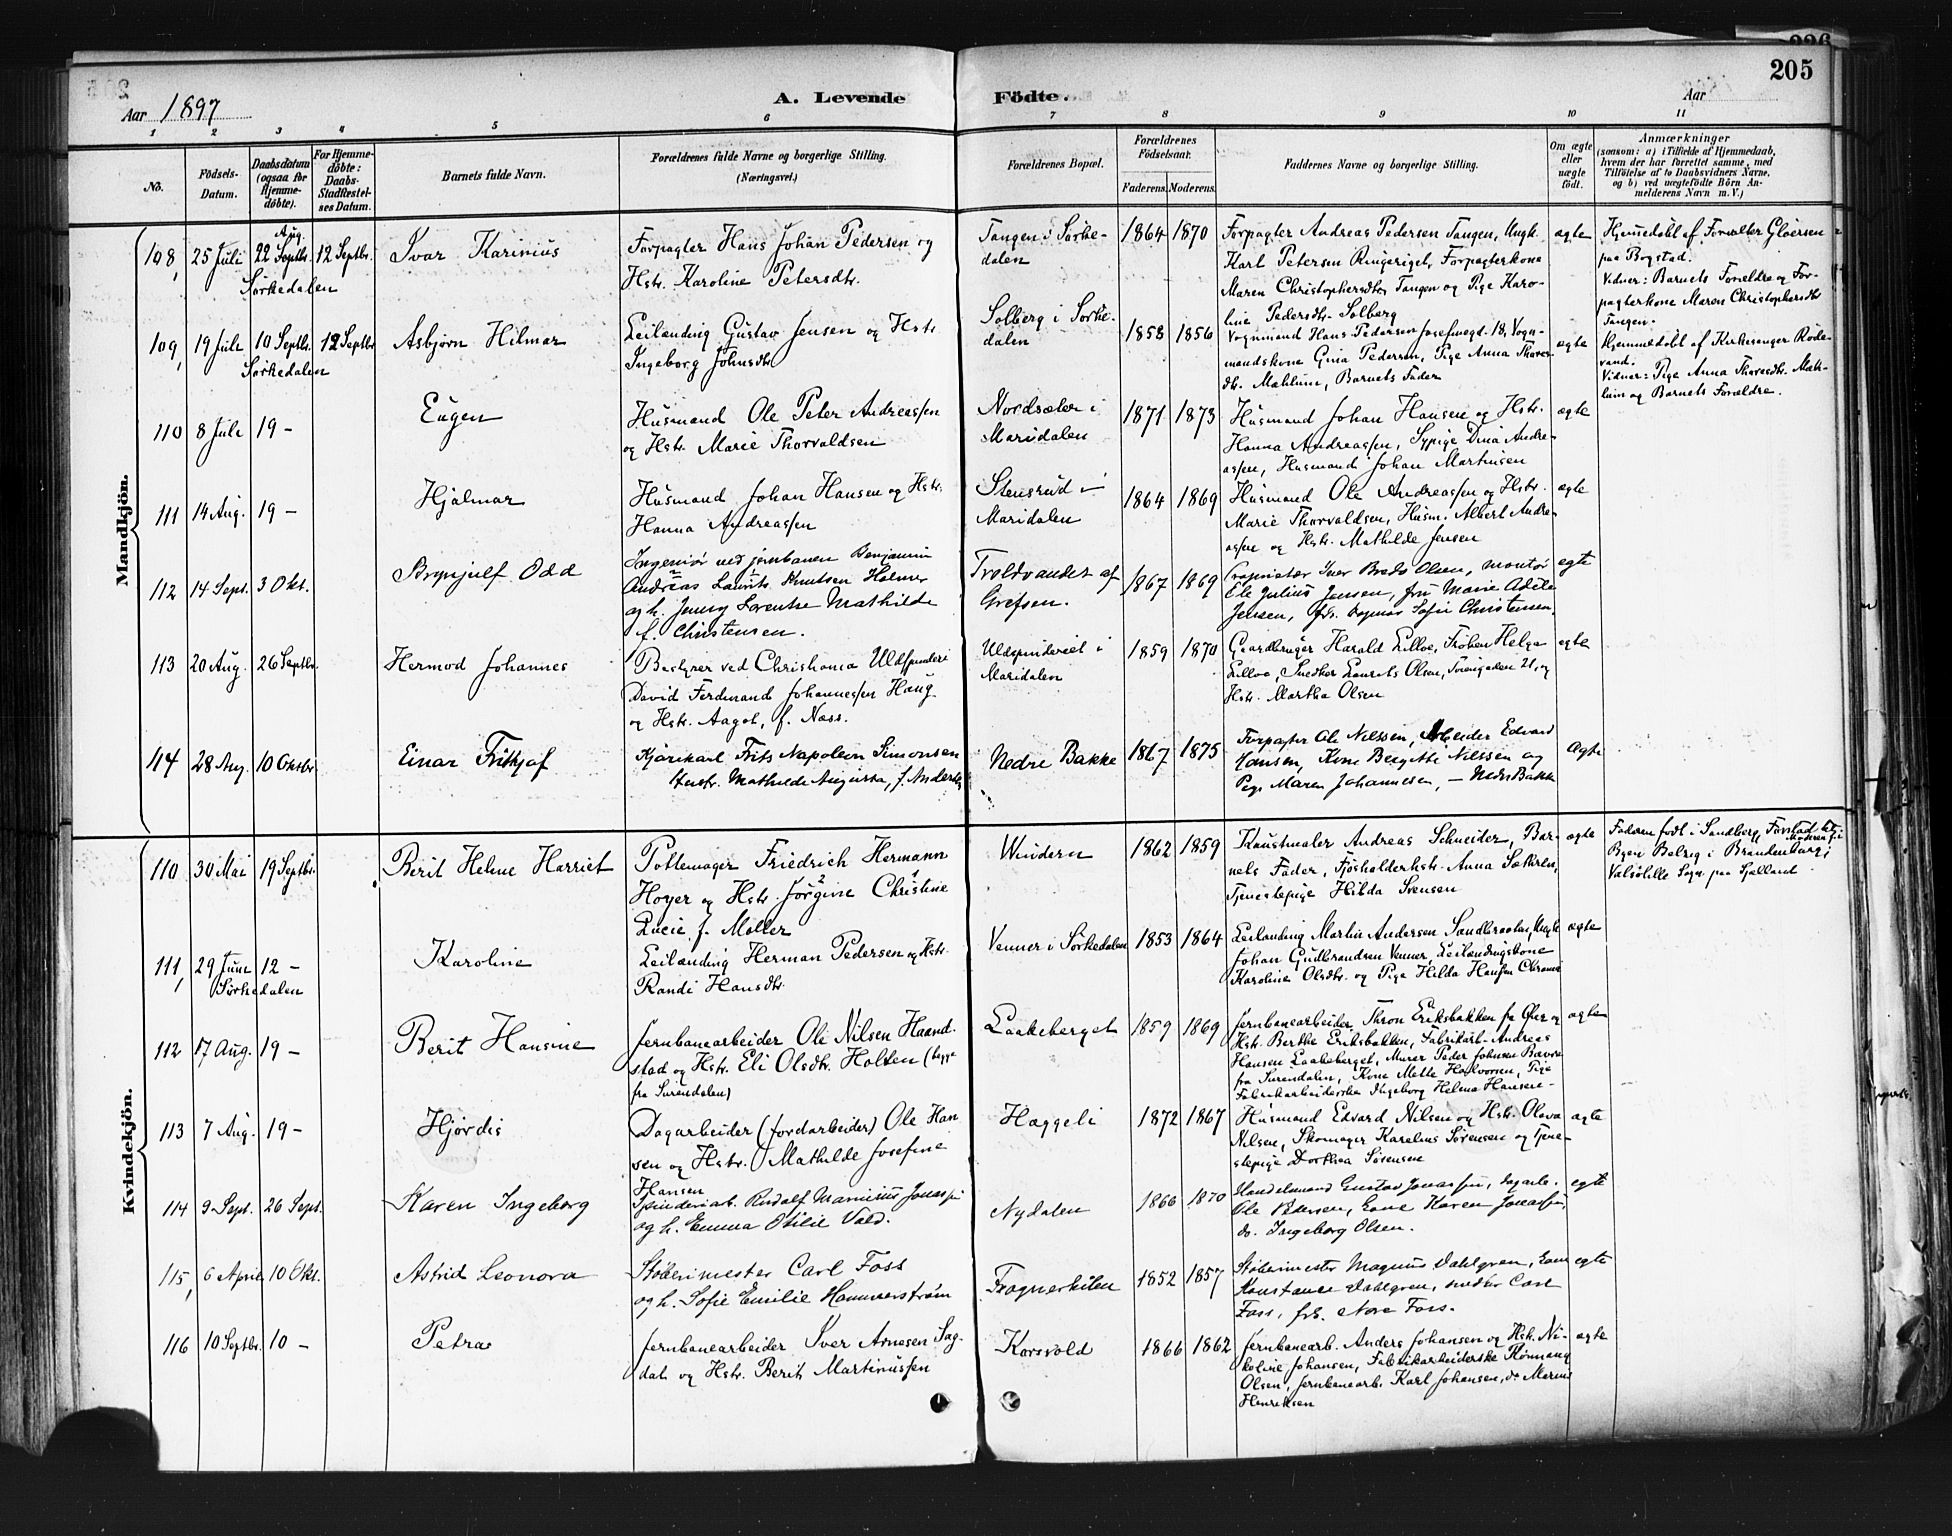 226
205
Aar 1897
A. Levende
Födte.
Aar
1 2 3 4 5 6 7 8 9 10 11
No.
Födsels-Datum.
Daabsdatum (ogsaa for Hjemme-döbte).
For Hjemme-döbte: Daabs-Stadfæstel-ses Datum.
Barnets fulde Navn.
Forældrenes fulde Navne og borgerlige Stilling.
(Næringsvei.)
Forældrenes Bopæl.
Forældrenes Födselsaar.
Faderens. Moderens.
Faddernes Navne og borgerlige Stilling.
Om ægte eller uægte födt.
Anmærkninger
(saasom: a) i Tilfælde af Hjemmedaab,
hvem der har forrettet samme, med
Tilföielse af to Daabsvidners Navne,
og b) ved uægtefödte Börn An-
melderens Navn m. V.)
Mandkjön.
108, 25 Juli 22 Aug. Septbr. 12 Septbr. Ivar Karinius
Sørkedalen
Forpagter Hans Johan Pedersen og
Hstr. Karoline Petersdtr.
Tangen i Sørke-
dalen
1864 1870
Forpagter Andreas Pedersen Tangen, Ungk.
Karl Petersen Ringeriget, Forpagterkone
Maren Christophersdtr. Tangen og Pige Karo-
line Pedersdtr. Solberg
ægte
Hjemmedøbt af Forvalter Gløersen
paa Bogstad.
Vidner: Barnets Forældre og For-
pagterkone Maren Christophersdtr
Tangen.
109, 19 Juli 10 Septbr. 12 Septbr Asbjørn Hilmar
Sørkedalen
Leilænding Gustav Jensen og Hstr.
Ingeborg Johnsdtr
Solberg i Sørke-
dalen
1858 1856
Vognmand Hans Pedersen Josefinegd. 18, Vogn-
mandskone Gina Pedersen, Pige Anna Thores-
dtr. Mahlum, Barnets Fader
ægte
Hjemmedøbt af Kirkesanger Røde-
vand.
Vidner: Pige Anna Thoresdtr. Mah-
lum og Barnets Forældre.
110 8 Juli 19 - Eugen
Husmand Ole Peter Andreassen
og Hstr. Marie Thorvaldsen
Nordsæter i
Maridalen
1871 1873
Husmand Johan Hansen og Hstr.
Hanna Andreassen, Sypige Dina Andre-
assen, Husmand Johan Martinsen
ægte
111 14 Aug. 19 - Hjalmar
Husmand Johan Hansen og Hstr.
Hanna Andreassen
Stensrud i
Maridalen
1864 1869
Husmand Ole Andreassen og Hstr.
Marie Thorvaldsen, Husm. Albert Andre-
assen og Hstr. Mathilde Jensen
ægte
112 14 Sept. 3 Okt. Brynjulf Odd
Ingeniør ved jernbanen Benjamin
Andreas Laurits Knutsen Holmer
og h. Jenny Lorentse Mathilde
f. Christensen.
Troldvandet af
Grefsen.
1867 1869
Proprietær Iver Bredo Olsen, montør
Ole Julius Jensen, fru Marie Adele
Jensen, frk. Dagmar Sofie Christensen.
egte
113 20 Aug. 26 Septbr. Hermod Johannes
Bestyrer ved Christiania Uldspinderi
David Ferdinand Johannessen Haug
og Hstr. Aagot, f. Næss.
Uldspinderiet i
Maridalen
1859 1870
Gaardbruger Harald Lilloe, Frøken Helga
Lilloe, Snedker Laurits Olsen, Toiengaden 21, og
Hstr. Martha Olsen
ægte
114 28 Aug. 10 Oktbr. Einar Fritkjof
Kjørekarl Frits Napoleon Simonsen
Hustr. Mathilde Augusta, f. Anders
Nedre Bakke
1867 1875
Forpagter Ole Nilssen, Arbeider Edvard
Hansen, Kone Bergitte Nilssen og
Pige Maren Johannesen, - Nedre Bakke
Ægte
Kvindekjön.
110 30 Mai 19 Septbr. Berit Helene Harriet
Pottemager Friedrich Hermann
Hoyer og Hstr. Jørgine Christine
Lucie f. Møller
Windern
1862 1859
Kunstmaler Andreas Schneider, Bar-
nets Fader, Fjøsholderhstr. Anna Sætheren,
Tjenestepige Hilda Svensen
ægte
Faderen født i Sandberg, Forstad til
Byen Belzig i Brandenburg; Moderen fra
Valsölille Sogn paa Sjælland.
111, 29 Juni 12 - Karoline
Sørkedalen
Leilænding Herman Pedersen og Hstr.
Randi Hansdtr.
Venner i Sørkedalen
1853 1864
Leilænding Martin Andersen Sandbraaten, Ungk.
Johan Gudbrandsen Venner, Leilændingskone
Karoline Olsdtr. og Pige Hilda Hansen
ægte
112 17 Aug. 19 - Berit Hansine
Jernbanearbeider Ole Nilsen Haand-
stad og Hstr. Eli Olsdtr. Holten (begge
fra Surendalen)
Laakeberget
1859 1869
Jernbanearbeider Thron Eriksbakken fra Øier og
Hstr. Berthe Eriksbakken, Fabrikarb. Andreas
Hansen Laakeberget, Murer Peder Johnsen Bævre
fra Surendalen, Kone Mette Halvorsen, Pige
Fabrikarbeiderske Ingeborg Helena Hansen -
ægte
113 7 Aug. 19 - Hjørdis
Dagarbeider (Jordarbeider) Ole Han
sen og Hstr. Mathilde Josefine
Hansen
Haggeli
1872 1867
Husmand Edvard Nilsen og Hstr. Olava
Nilsen, Skomager Karelius Sørensen og Tjene-
stepige Dorthea Sørensen
ægte
114 9 Sept. 26 Sept. Karen Ingeborg
Spinderiarb. Rudolf Marinius Jonassen
og h. Emma Otilie Vald.
Nydalen
1866 1870
Handelsmand Gustav Jonassen, dagarb.
Ole Bærsen, kone Karen Jonassen,
do. Ingeborg Olsen.
egte
115, 6 April 10 Okt. Astrid Leonora
Støberimester Carl Foss
og h. Sofie Emilie Hammerstrøm
Frognerkilen
1852 1857
Støberimester Magnus Dahlgren, kone
Konstance Dahlgren, snedker Carl
Foss, frk. Nora Foss.
egte
116 10 Septbr. 10 - Petra
Jernbanearbeider Iver Arnesen Sag-
dal og Hstr. Berit Martinussen
Korsvold
1866 1862
Jernbanearb. Anders Johansen og Hstr. Ni-
koline Johansen, Fabrikarbeiderske Rønnaug
Olsen, Jernbanearb. Karl Johansen, do Marius
Henriksen
ægte